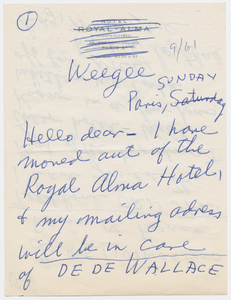 1
HOTEL
ROYAL-ALMA
9/61
Weegee
SUNDAY
Paris, Saturday
Hello dear - I have
moved out of the
Royal Alma Hotel,
& my mailing adress
will be in care
of DE DE WALLACE